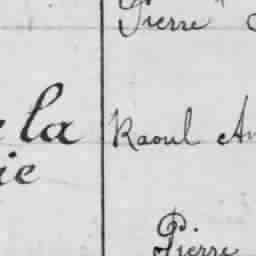 Pierre
la
Raoul
ie
Pierre